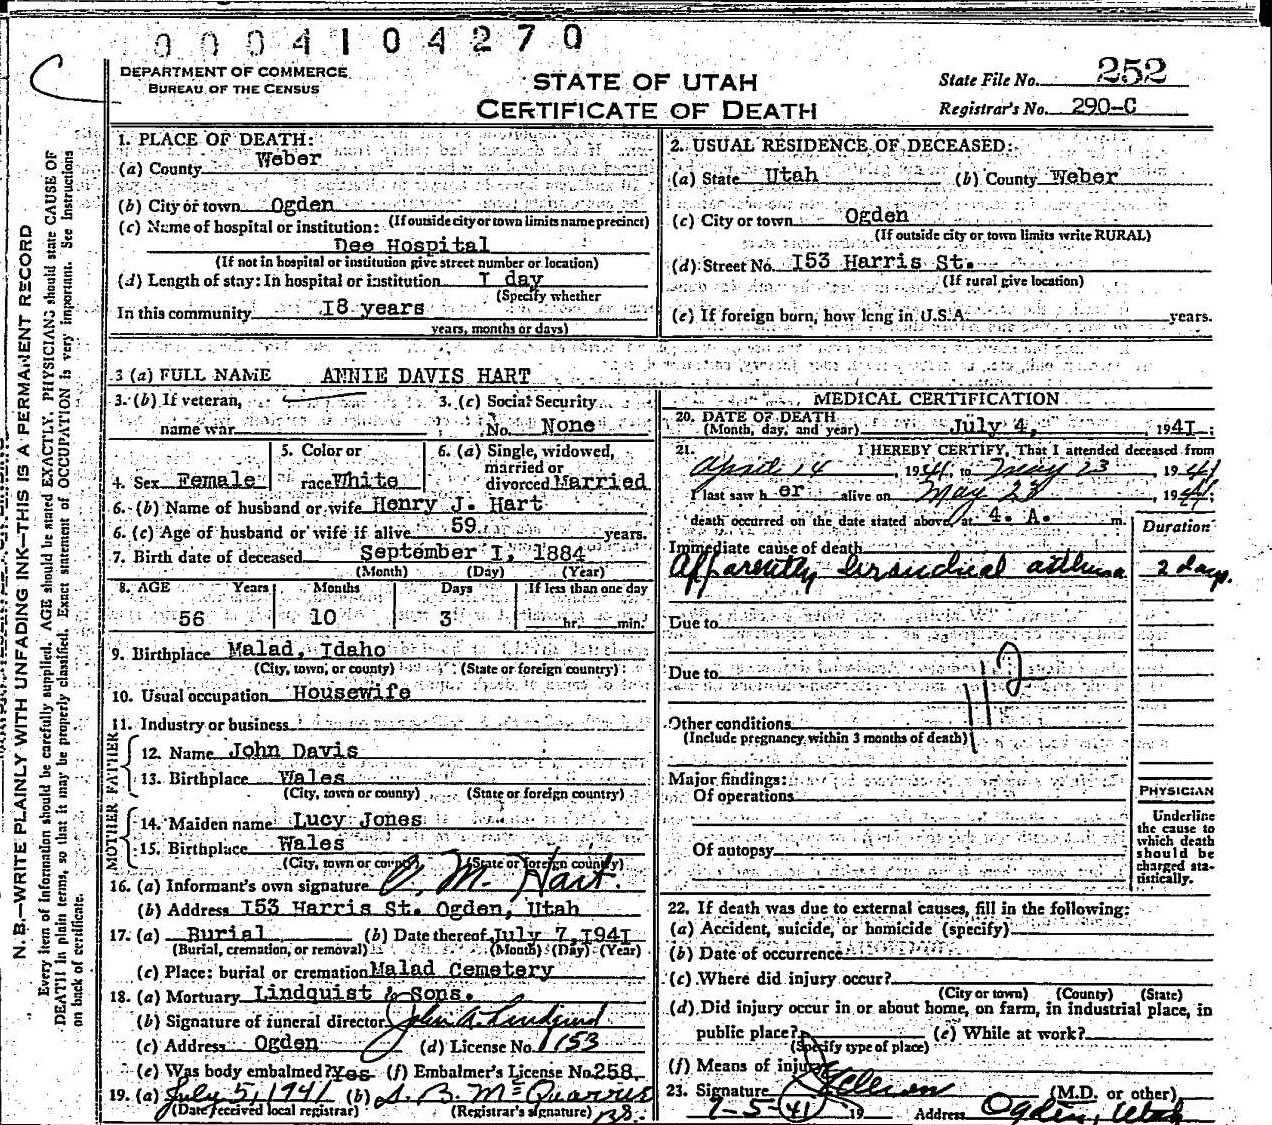 0004104270
C
DEPARTMENT OF COMMERCE
BUREAU OF THE CENSUS
STATE OF UTAH
CERTIFICATE OF DEATH
State File No. 252
Registrar's No. 290-C
N. B.—WRITE PLAINLY WITH UNFADING INK—THIS IS A PERMANENT RECORD
Every item of information should be carefully supplied. AGE should be stated EXACTLY. PHYSICIANS should state CAUSE OF
DEATH in plain terms, so that it may be properly classified. Exact statement of OCCUPATION is very important. See Instructions
on back of certificate.
1. PLACE OF DEATH:
(a) County Weber
(b) City or town Ogden
(If outside city or town limits name precinct)
(c) Name of hospital or institution:
Dee Hospital
(If not in hospital or institution give street number or location)
(d) Length of stay: In hospital or institution I day
(Specify whether
In this community I8 years
years, months or days)
2. USUAL RESIDENCE OF DECEASED:
(a) State Utah (b) County Weber
(c) City or town Ogden
(If outside city or town limits write RURAL)
(d) Street No. I53 Harris St.
(If rural give location)
(e) If foreign born, how long in U.S.A. years.
3 (a) FULL NAME ANNIE DAVIS HART
3. (b) If veteran,
name war
3. (c) Social Security
No. None
4. Sex Female
5. Color or
race White
6. (a) Single, widowed,
married or
divorced Married
6. (b) Name of husband or wife Henry J. Hart
6. (c) Age of husband or wife if alive 59 years.
7. Birth date of deceased September I, 1884
(Month) (Day) (Year)
8. AGE Years Months Days If less than one day
56 10 3 hr. min.
9. Birthplace Malad, Idaho
(City, town, or county) (State or foreign country)
10. Usual occupation Housewife
11. Industry or business
FATHER
12. Name John Davis
13. Birthplace Wales
(City, town or county) (State or foreign country)
MOTHER
14. Maiden name Lucy Jones
15. Birthplace Wales
(City, town or county) (State or foreign country)
16. (a) Informant's own signature M. Hart.
(b) Address I53 Harris St. Ogden, Utah
17. (a) Burial (b) Date thereof July 7, I94I
(Burial, cremation, or removal) (Month) (Day) (Year)
(c) Place: burial or cremation Malad Cemetery
18. (a) Mortuary Lindquist & Sons.
(b) Signature of funeral director John A. Lindquist
(c) Address Ogden (d) License No. 153
(e) Was body embalmed? Yes (f) Embalmer's License No. 258
19. (a) July 5, 1941 (b) S. B. McQuarrie
(Date received local registrar) (Registrar's signature)
MEDICAL CERTIFICATION
20. DATE OF DEATH
(Month, day, and year) July 4, 194I
21. I HEREBY CERTIFY, That I attended deceased from
April 14 1941 to May 23 1941
I last saw h er alive on May 23, 1941;
death occurred on the date stated above, at 4. A. m.
Duration
Immediate cause of death
Apparently bronchial asthma 2 days.
Due to
Due to
112
Other conditions
(Include pregnancy within 3 months of death)
Major findings:
Of operations
Of autopsy
PHYSICIAN
Underline
the cause to
which death
should be
charged sta-
tistically.
22. If death was due to external causes, fill in the following:
(a) Accident, suicide, or homicide (specify)
(b) Date of occurrence
(c) Where did injury occur?
(City or town) (County) (State)
(d) Did injury occur in or about home, on farm, in industrial place, in
public place? (e) While at work?
(Specify type of place)
(f) Means of injury
23. Signature (M.D. or other)
7-5-41 19 Address Ogden, Utah